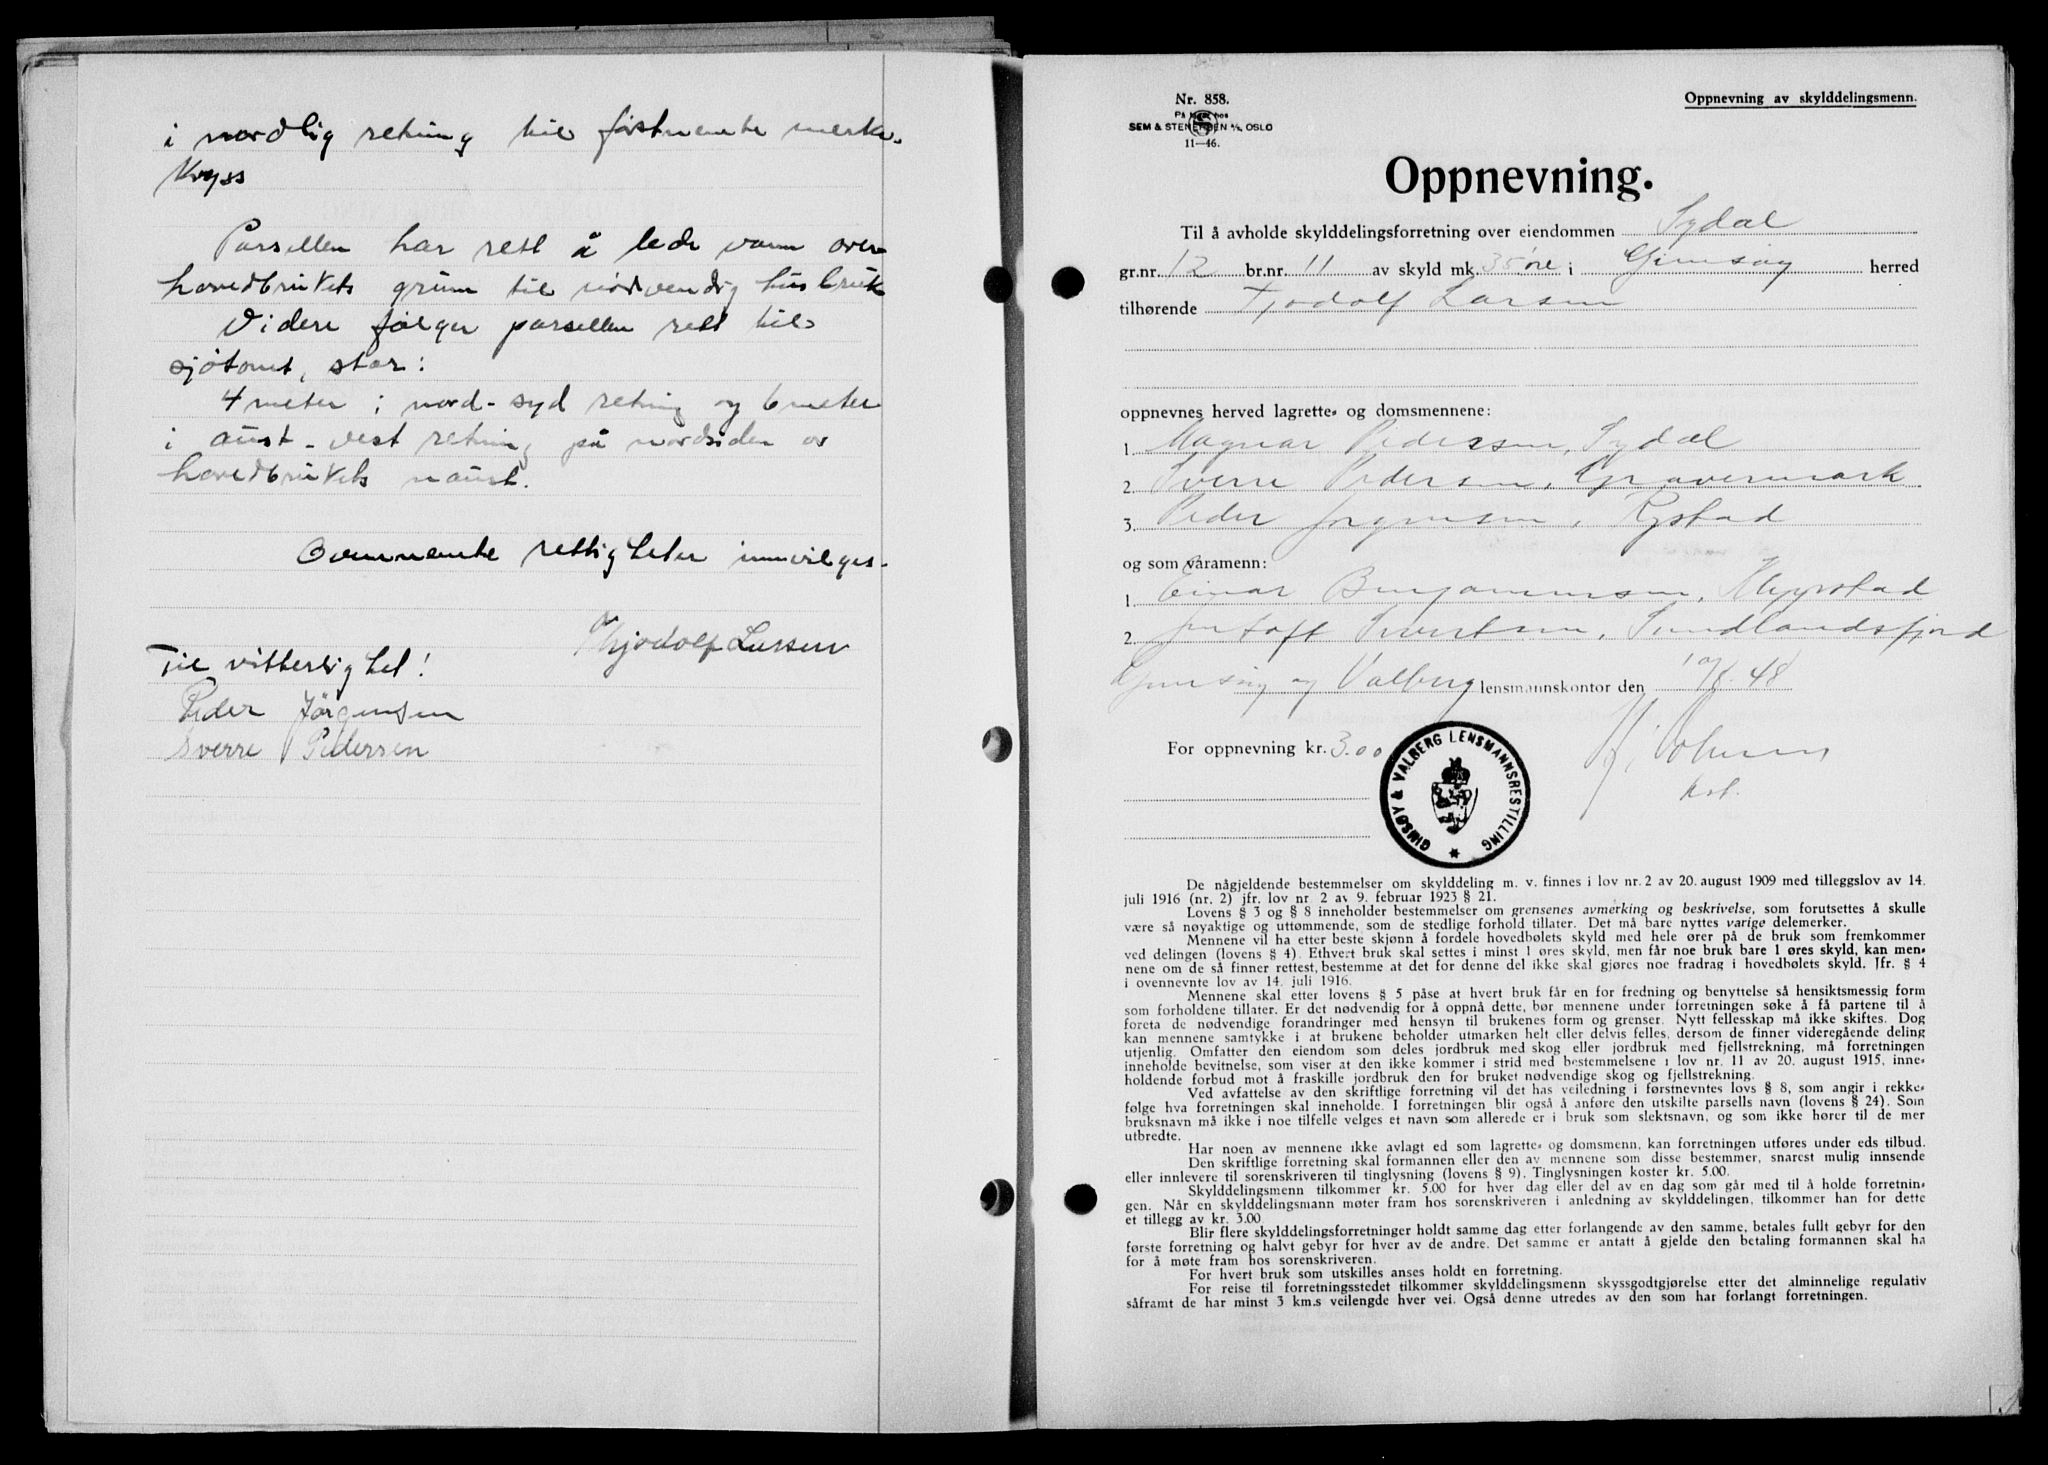 i nordlig retning til førstnemte merke-
kryss
Parsellen har rett å lede vann over
hovedbrukets grunn til nødvendig husbruk
Videre følger parsellen rett til
sjøtomt, stør:
4 meter i nord-syd retning og 6 meter
i aust-vest retning på nordsiden av
hovedbrukets naust.
Ovennemte rettigheter innvilges.
Thjodolf Larsen
Til vitterlighet!
Peder Jørgensen
Sverre Pedersen
Nr. 858.
På lager hos
SEM & STENERSEN A/S, OSLO
11—46.
Oppnevning av skylddelingsmenn.
Oppnevning.
Til å avholde skylddelingsforretning over eiendommen Sydal
gr.nr. 12 br.nr. 11 av skyld mk. 35 øre i Gimsøy herred
tilhørende Tjodolf Larsen
oppnevnes herved lagrette- og domsmennene:
1. Magnar Pedersen, Sydal
2. Sverre Pedersen, Gravermark
3. Peder Jørgensen, Rystad
og som våramenn:
1. Einar Benjaminsen, Hyrstad
2. Jentoft Sivertsen, Sundlandsfjord
Gimsøy og Valberg lensmannskontor den 10/8-48
For oppnevning kr. 3.00
GIMSØY & VALBERG LENSMANNSBESTILLING
De någjeldende bestemmelser om skylddeling m. v. finnes i lov nr. 2 av 20. august 1909 med tilleggslov av 14.
juli 1916 (nr. 2) jfr. lov nr. 2 av 9. februar 1923 § 21.
Lovens § 3 og § 8 inneholder bestemmelser om grensenes avmerking og beskrivelse, som forutsettes å skulle
være så nøyaktige og uttømmende, som de stedlige forhold tillater. Det må bare nyttes varige delemerker.
Mennene vil ha etter beste skjønn å fordele hovedbølets skyld med hele ører på de bruk som fremkommer
ved delingen (lovens § 4). Ethvert bruk skal settes i minst 1 øres skyld, men får noe bruk bare 1 øres skyld, kan men-
nene om de så finner rettest, bestemme at det for denne del ikke skal gjøres noe fradrag i hovedbølets skyld. Jfr. § 4
i ovennevnte lov av 14. juli 1916.
Mennene skal etter lovens § 5 påse at hvert bruk får en for fredning og benyttelse så hensiktsmessig form
som forholdene tillater. Er det nødvendig for å oppnå dette, bør mennene under forretningen søke å få partene til å
foreta de nødvendige forandringer med hensyn til brukenes form og grenser. Nytt fellesskap må ikke skiftes. Dog
kan mennene samtykke i at brukene beholder utmarken helt eller delvis felles, dersom de finner videregående deling
utjenlig. Omfatter den eiendom som deles jordbruk med skog eller jordbruk med fjellstrekning, må forretningen
inneholde bevitnelse, som viser at den ikke kommer i strid med bestemmelsene i lov nr. 11 av 20. august 1915, inne-
holdende forbud mot å fraskille jordbruk den for bruket nødvendige skog og fjellstrekning.
Ved avfattelse av den skriftlige forretning vil det has veiledning i førstnevntes lovs § 8, som angir i rekke-
følge hva forretningen skal inneholde. I forretningen blir også å anføre den utskilte parsells navn (lovens § 24). Som
bruksnavn må ikke i noe tilfelle velges et navn som allerede er i bruk som slektsnavn, og som ikke hører til de mer
utbredte.
Har noen av mennene ikke avlagt ed som lagrette- og domsmenn, kan forretningen utføres under eds tilbud.
Den skriftlige forretning skal formannen eller den av mennene som disse bestemmer, snarest mulig innsende
eller innlevere til sorenskriveren til tinglysning (lovens § 9). Tinglysningen koster kr. 5.00.
Skylddelingsmenn tilkommer kr. 5.00 for hver dag eller del av en dag som går med til å holde forretnin-
gen. Når en skylddelingsmann møter fram hos sorenskriveren i anledning av skylddelingen, tilkommer han for dette
et tillegg av kr. 3.00.
Blir flere skylddelingsforretninger holdt samme dag etter forlangende av den samme, betales fullt gebyr for den
første forretning og halvt gebyr for hver av de andre. Det samme er antatt å gjelde den betaling formannen skal ha
for å møte fram hos sorenskriveren.
For hvert bruk som utskilles anses holdt en forretning.
For reise til forretningsstedet tilkommer skylddelingsmenn skyssgodtgjørelse etter det alminnelige regulativ
såframt de har minst 3 km.s veilengde hver vei. Også denne utredes av den som har forlangt forretningen.